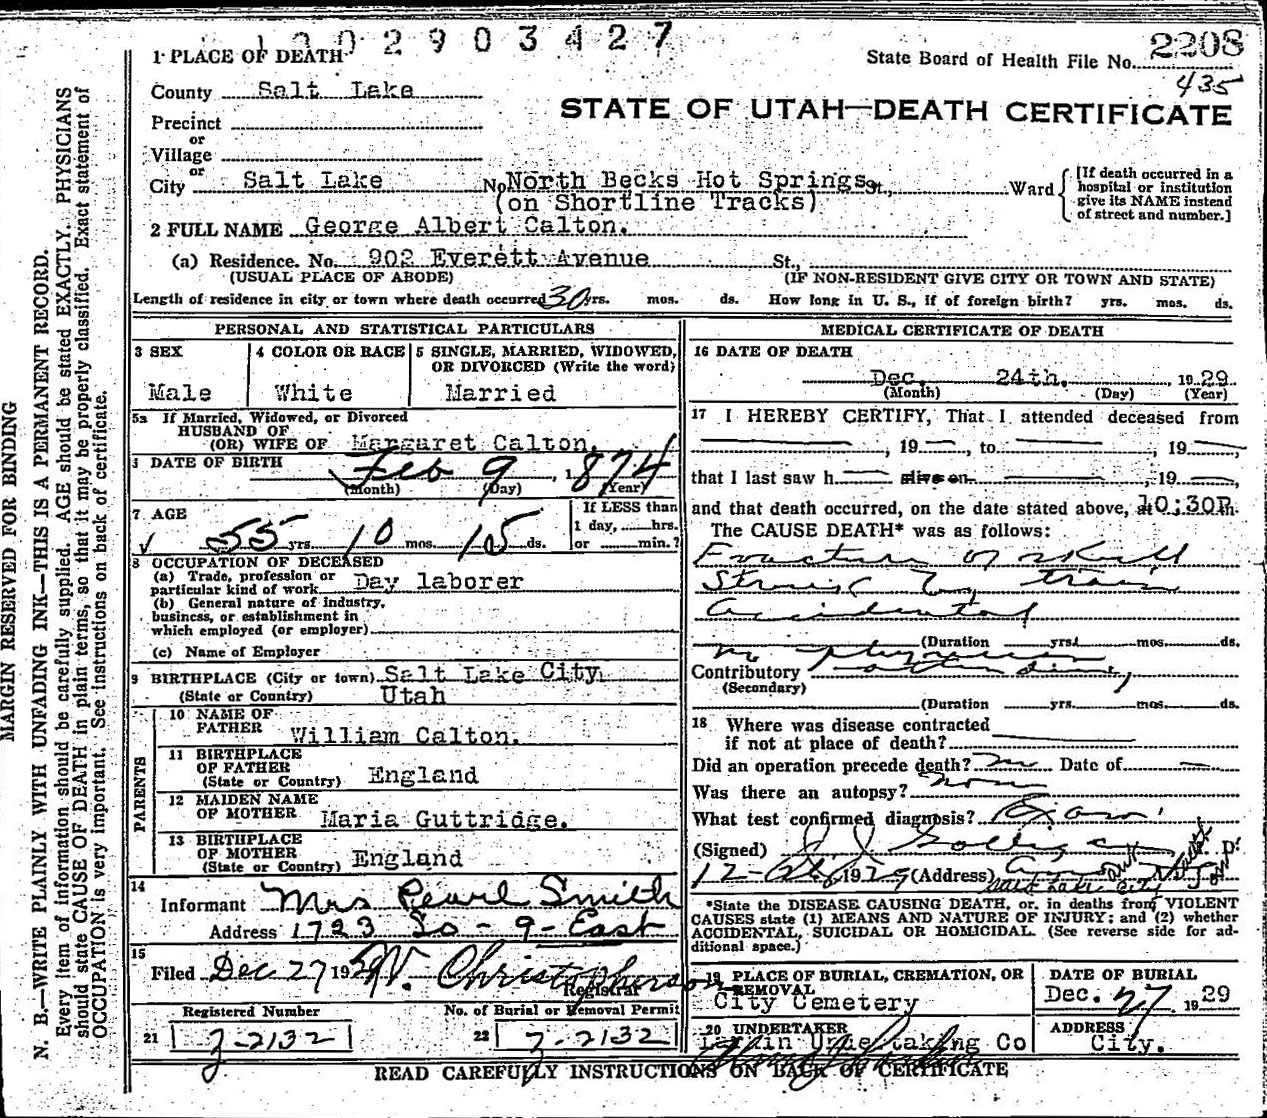 1 0 0 2 9 0 3 4 2 7
1 PLACE OF DEATH
State Board of Health File No. 2208
435
County Salt Lake
STATE OF UTAH—DEATH CERTIFICATE
Precinct
or
Village
or
City Salt Lake No. North Becks Hot Springs St., Ward
(on Shortline Tracks)
[If death occurred in a
hospital or institution
give its NAME instead
of street and number.]
2 FULL NAME George Albert Calton.
(a) Residence. No. 902 Everett Avenue St.,
(USUAL PLACE OF ABODE) (IF NON-RESIDENT GIVE CITY OR TOWN AND STATE)
Length of residence in city or town where death occurred 30 yrs. mos. ds. How long in U. S., if of foreign birth? yrs. mos. ds.
PERSONAL AND STATISTICAL PARTICULARS
3 SEX
Male
4 COLOR OR RACE
White
5 SINGLE, MARRIED, WIDOWED,
OR DIVORCED (Write the word)
Married
5a If Married, Widowed, or Divorced
HUSBAND OF
(OR) WIFE OF Margaret Calton.
DATE OF BIRTH
Feb 9, 1874
(Month) (Day) (Year)
7 AGE
55 yrs. 10 mos. 15 ds.
If LESS than
1 day, hrs.
or min.?
8 OCCUPATION OF DECEASED
(a) Trade, profession or
particular kind of work Day laborer
(b) General nature of industry,
business, or establishment in
which employed (or employer)
(c) Name of Employer
9 BIRTHPLACE (City or town) Salt Lake City
(State or Country) Utah
PARENTS
10 NAME OF
FATHER William Calton.
11 BIRTHPLACE
OF FATHER
(State or Country) England
12 MAIDEN NAME
OF MOTHER Maria Guttridge.
13 BIRTHPLACE
OF MOTHER
(State or Country) England
14
Informant Mrs Pearl Smith
Address 1723 So - 9 - East
15
Filed Dec 27 1929 W. Christopherson
Registrar
Registered Number
21 Z-2132
No. of Burial or Removal Permit
22 Z-2132
MEDICAL CERTIFICATE OF DEATH
16 DATE OF DEATH
Dec. 24th. , 1929
(Month) (Day) (Year)
17 I HEREBY CERTIFY, That I attended deceased from
, 19 , to , 19 ,
that I last saw h alive on , 19 ,
and that death occurred, on the date stated above, at 10:30P.
The CAUSE DEATH* was as follows:
Fracture of skull
Struck by train
accidental
(Duration yrs. mos. ds.
no physician
Contributory attending,
(Secondary)
(Duration yrs. mos. ds.
18 Where was disease contracted
if not at place of death?
Did an operation precede death? no Date of
Was there an autopsy? none
What test confirmed diagnosis? Exam
(Signed)
12-26 1929 (Address)
Salt Lake City
*State the DISEASE CAUSING DEATH, or, in deaths from VIOLENT
CAUSES state (1) MEANS AND NATURE OF INJURY; and (2) whether
ACCIDENTAL, SUICIDAL OR HOMICIDAL. (See reverse side for ad-
ditional space.)
19 PLACE OF BURIAL, CREMATION, OR
REMOVAL
City Cemetery
DATE OF BURIAL
Dec. 27 1929
20 UNDERTAKER
Larkin Undertaking Co
ADDRESS
City.
READ CAREFULLY INSTRUCTIONS ON BACK OF CERTIFICATE
MARGIN RESERVED FOR BINDING
N. B.—WRITE PLAINLY WITH UNFADING INK—THIS IS A PERMANENT RECORD.
Every item of information should be carefully supplied. AGE should be stated EXACTLY. PHYSICIANS
should state CAUSE OF DEATH in plain terms, so that it may be properly classified. Exact statement of
OCCUPATION is very important. See instructions on back of certificate.